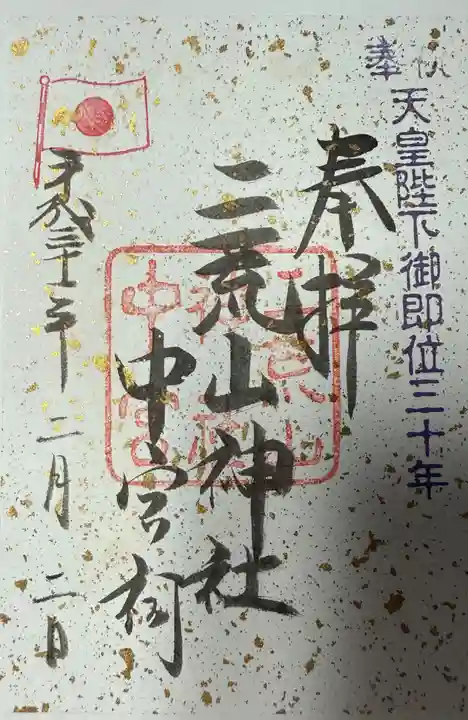 奉祝天皇陛下御即位三十年
奉拝
二荒山神社
中宮祠
平成三十一年二月二日